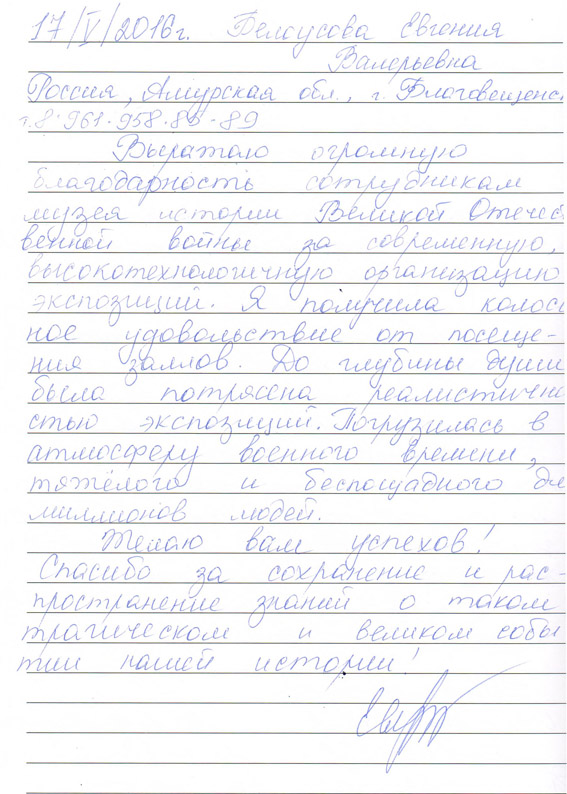 17/V/2016г. Белоусова Евгения
Валерьевна
Россия, Амурская обл., г. Благовещенс
т. 8-961-958-85-89
Выражаю огромную
благодарность сотрудникам
музея истории Великой Отечест
венной войны за современную,
высокотехнологичную организацию
экспозиций. Я получила колос
ное удовольствие от посеще-
ния заллов. До глубины души
была потрясена реалистично
стью экспозиций. Погрузилась в
атмосферу военного времени,
тяжёлого и беспощадного для
миллионов людей.
Желаю вам успехов!
Спасибо за сохранение и рас-
пространение знаний о таком
трагическом и великом собы
тии нашей истории!